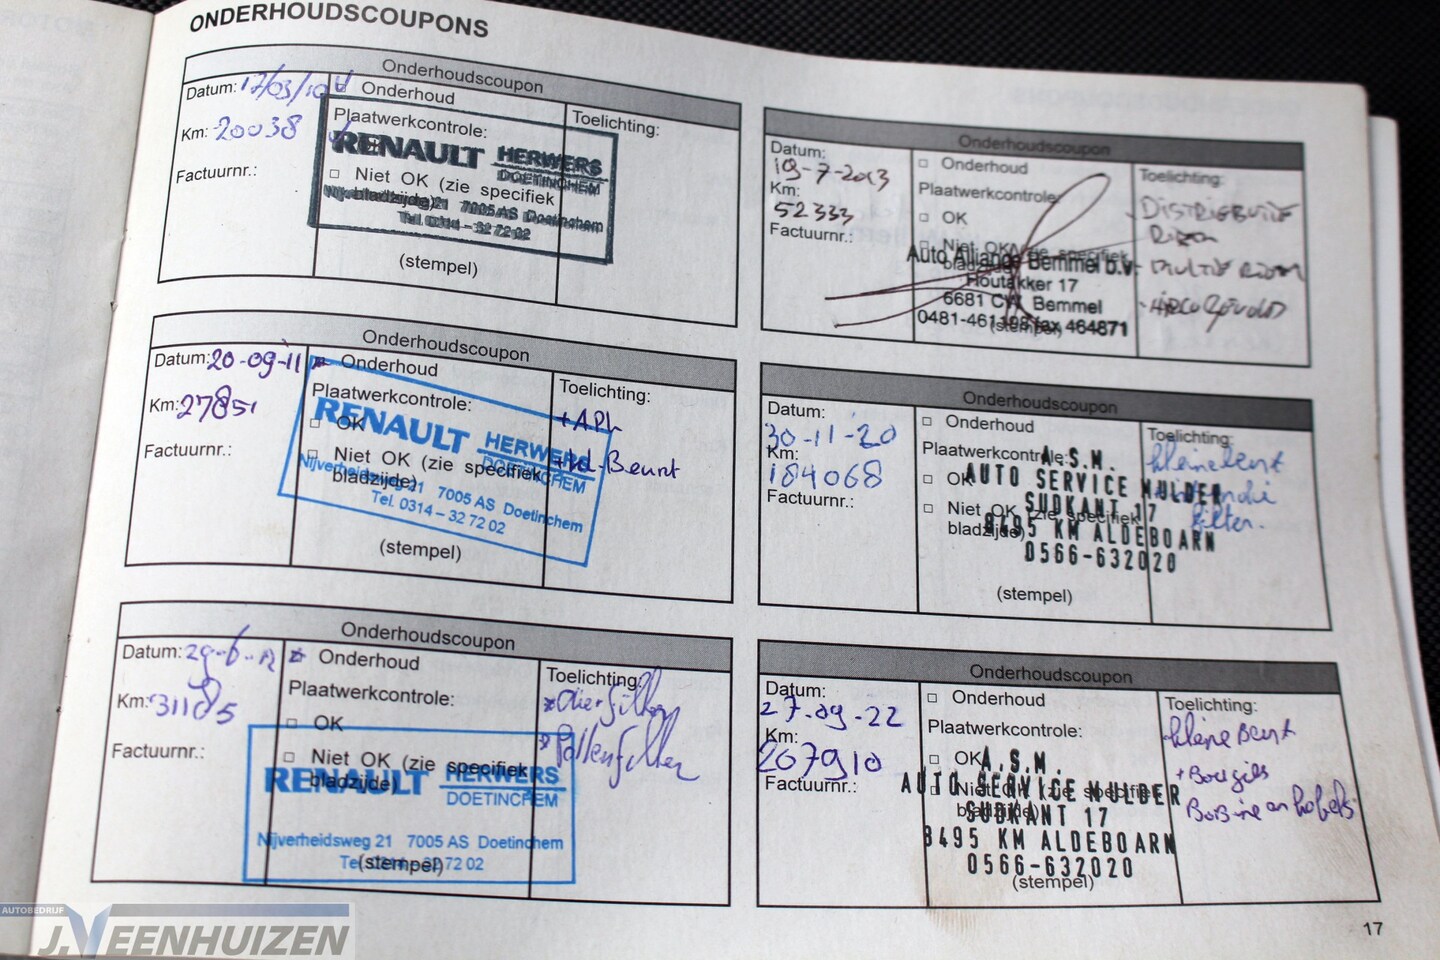 ONDERHOUDSCOUPONS
Onderhoudscoupon
Datum: 17/03/10
Onderhoud
Km: 20038
Plaatwerkcontrole:
Toelichting:
Factuurnr.:
RENAULT HERWERS
DOETINCHEM
Niet OK (zie specifiek
bladzijde)
Nijverheidsweg 21 7005 AS Doetinchem
Tel. 0314 - 32 72 02
(stempel)
Onderhoudscoupon
Datum: 20-09-11
Onderhoud
Km: 27851
Plaatwerkcontrole:
Toelichting:
+APK
Factuurnr.:
OK
RENAULT HERWERS
DOETINCHEM
Niet OK (zie specifiek
bladzijde)
Beurt
Nijverheidsweg 21 7005 AS Doetinchem
Tel. 0314 - 32 72 02
(stempel)
Onderhoudscoupon
Datum: 29-6-12
Onderhoud
Km: 31185
Plaatwerkcontrole:
Toelichting:
Pollenfilter
Factuurnr.:
OK
Niet OK (zie specifiek
bladzijde)
RENAULT HERWERS
DOETINCHEM
Nijverheidsweg 21 7005 AS Doetinchem
Tel. 0314 - 32 72 02
(stempel)
Onderhoudscoupon
Datum:
19-7-2013
Km:
52333
Factuurnr.:
Onderhoud
Plaatwerkcontrole:
OK
Niet OK (zie specifiek
bladzijde)
Auto Alliance Bemmel b.v.
Houtakker 17
6681 CW Bemmel
0481-461198 fax 464871
(stempel)
Toelichting:
- DISTRIEBUTIE
RIEM
- MULTIE RIEM
- AIRCO GEVULD
Onderhoudscoupon
Datum:
30-11-20
Km:
184068
Factuurnr.:
Onderhoud
Plaatwerkcontrole:
OK
Niet OK (zie specifiek
bladzijde)
A.S.M.
AUTO SERVICE MULDER
SUDKANT 17
8495 KM ALDEBOARN
0566-632020
(stempel)
Toelichting:
kleine beurt
filter.
Onderhoudscoupon
Datum:
27-09-22
Km:
207910
Factuurnr.:
Onderhoud
Plaatwerkcontrole:
OK
Niet OK (zie specifiek
bladzijde)
A.S.M.
AUTO SERVICE MULDER
SUDKANT 17
8495 KM ALDEBOARN
0566-632020
(stempel)
Toelichting:
kleine Beurt
+ Bougies
Bobine en kabels
17
AUTOBEDRIJF
J. VEENHUIZEN